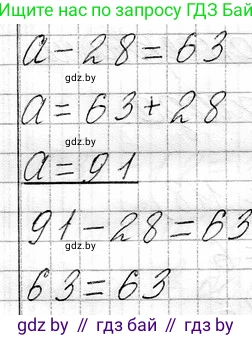 Ищите нас по запросу ГДЗ Бай
a - 28 = 63
gdz.by
a = 63 + 28
gdz.by
a = 91
gdz.by
91 - 28 = 63
63 = 63
gdz by // гдз бай // gdz by